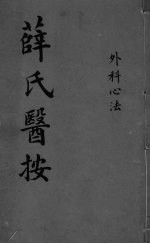 薛氏醫按
外科心法